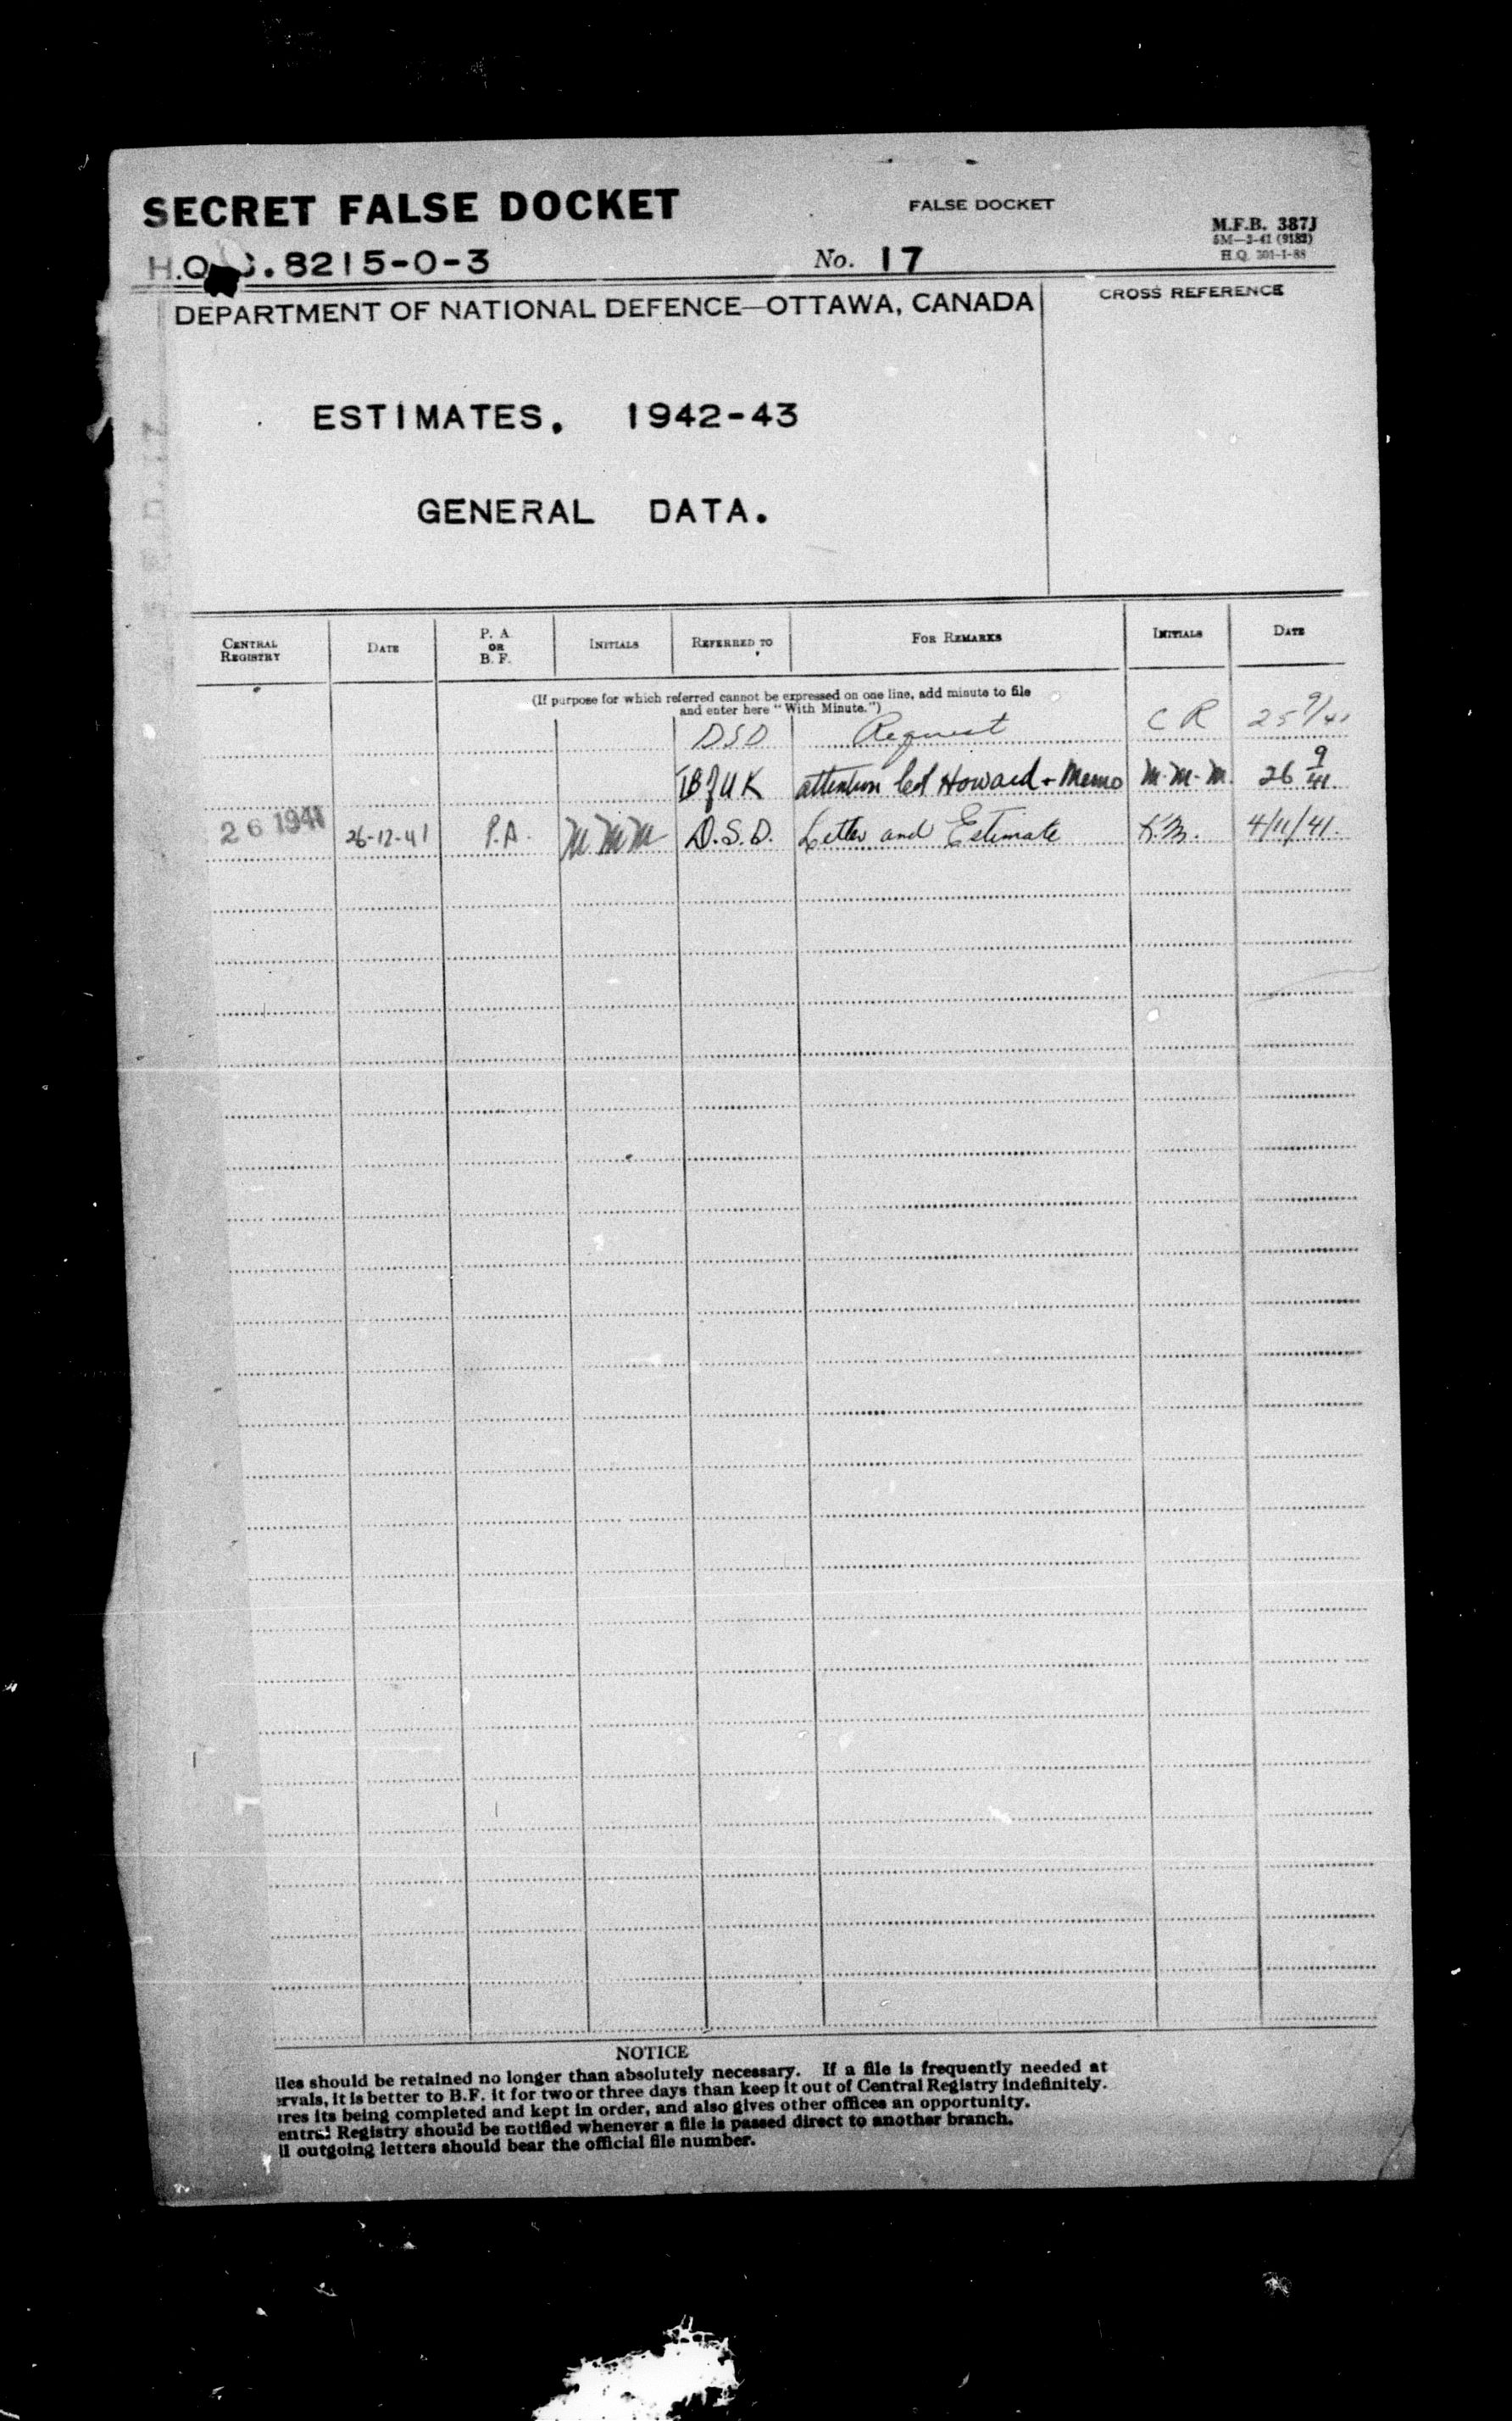 SECRET FALSE DOCKET
FALSE DOCKET
M.F.B. 387J
5M—3-41 (9182)
H.Q. 301-1-88
H.Q. .8215-0-3 No. 17
DEPARTMENT OF NATIONAL DEFENCE—OTTAWA, CANADA
CROSS REFERENCE
ESTIMATES. 1942-43
GENERAL DATA.
CENTRAL REGISTRY DATE P. A. OR B. F. INITIALS REFERRED TO FOR REMARKS INITIALS DATE
(If purpose for which referred cannot be expressed on one line, add minute to file
and enter here "With Minute.")
DSD Request C R 25 9/41
attention Col Howard + Memo M.M.M. 26 9/41
26 1941 26-12-41 P.A. M.M.M. D.S.D. Letter and Estimate 4/11/41.
NOTICE
iles should be retained no longer than absolutely necessary. If a file is frequently needed at
ervals, it is better to B.F. it for two or three days than keep it out of Central Registry indefinitely.
ures its being completed and kept in order, and also gives other offices an opportunity.
entral Registry should be notified whenever a file is passed direct to another branch.
ll outgoing letters should bear the official file number.